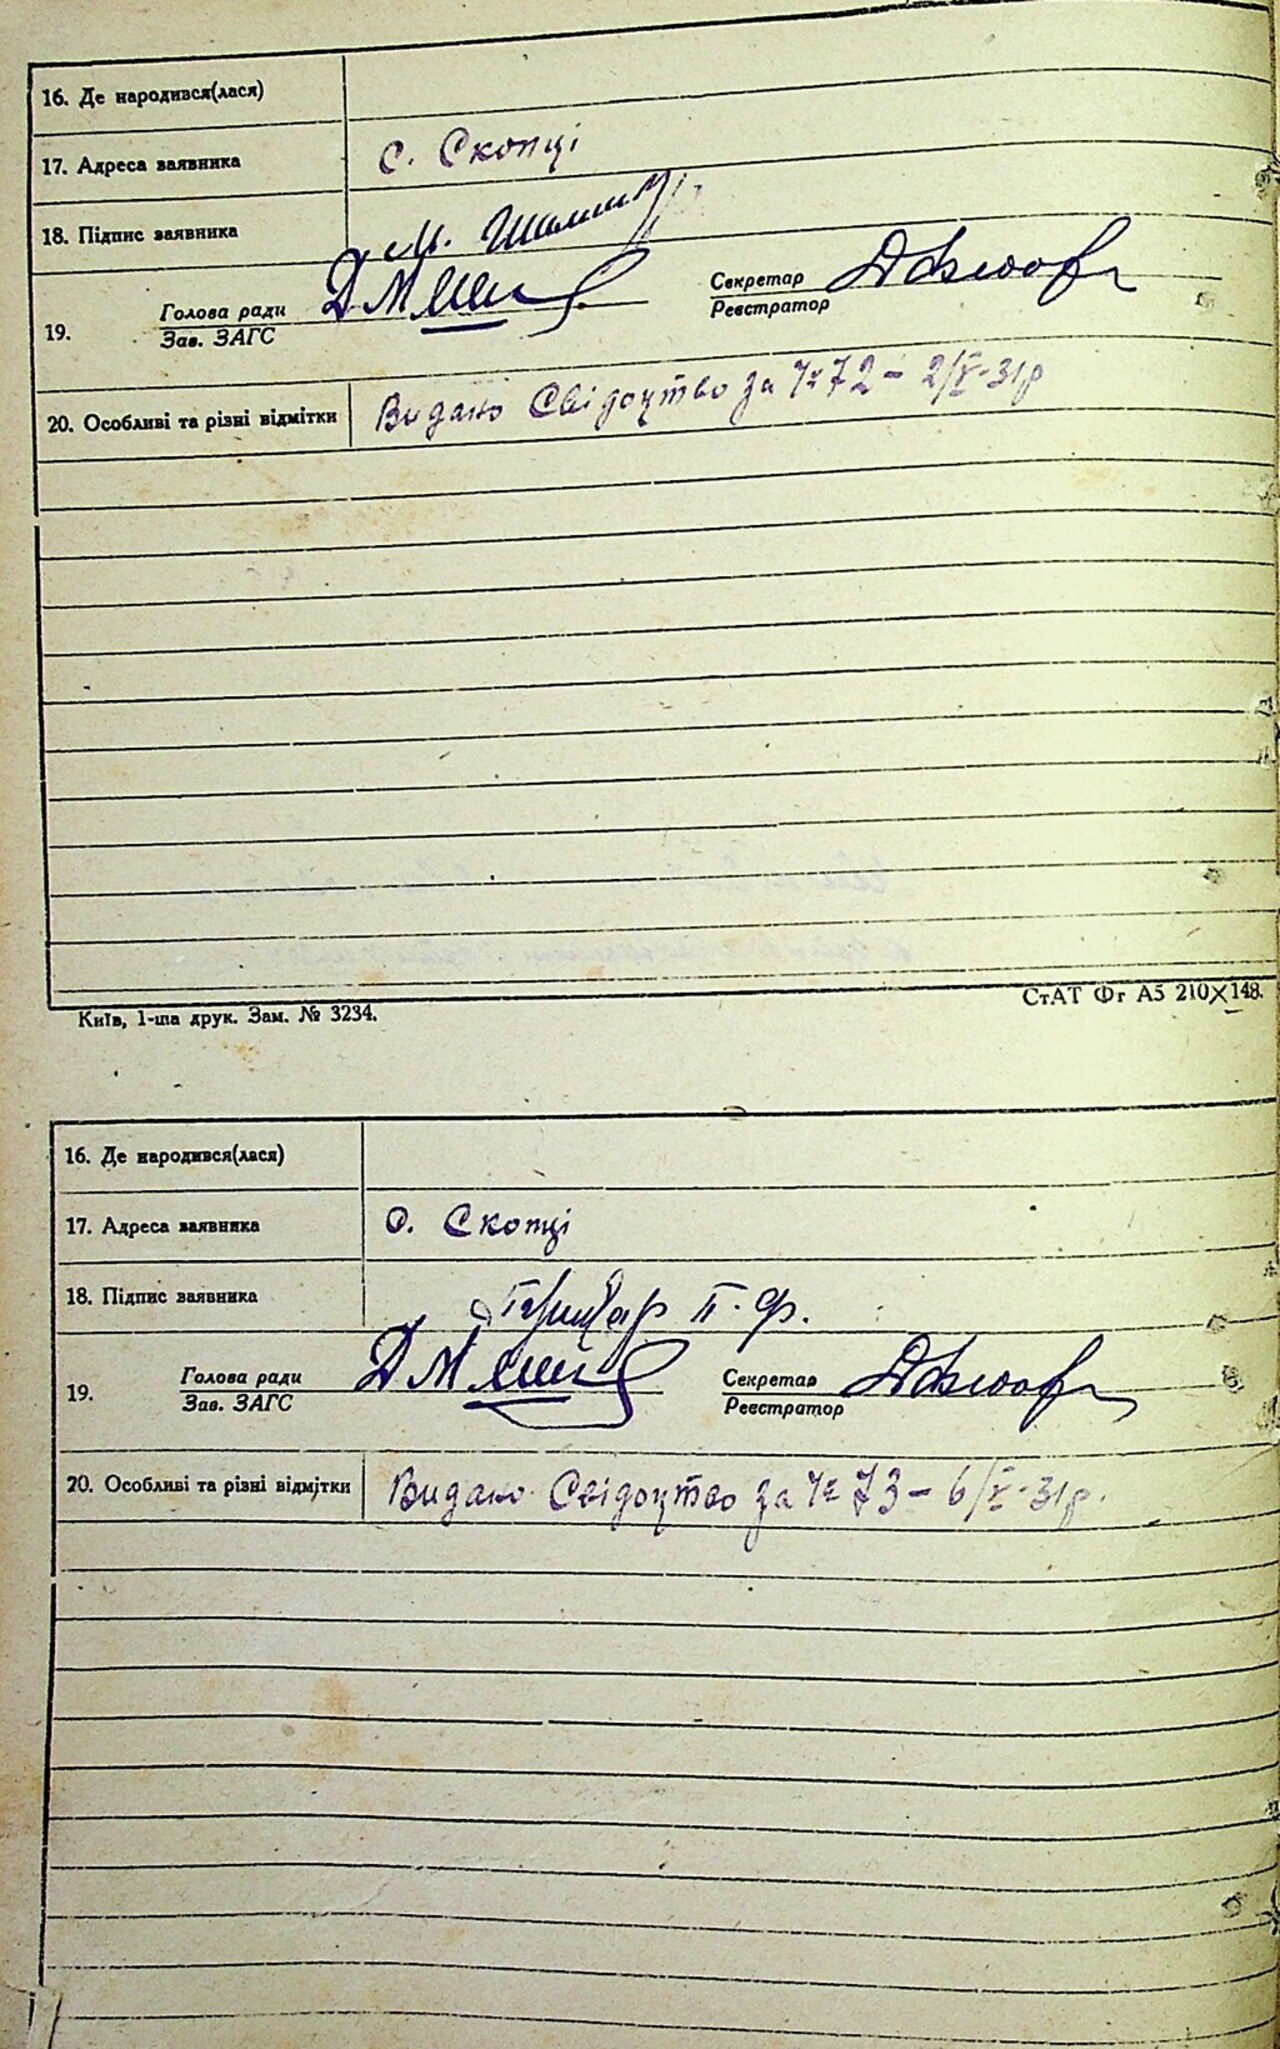 16. Де народився(лася)
17. Адреса заявника с. Скопці
18. Підпис заявника М.
19. Голова ради Секретар
Зав. ЗАГС Реєстратор
20. Особливі та різні відмітки Видано Свідоцтво за № 72 – 2/V-31р
Київ, 1-ша друк. Зам. № 3234. СтАТ Фг А5 210X148.
16. Де народився(лася)
17. Адреса заявника с. Скопці
18. Підпис заявника П. Ф.
19. Голова ради Секретар
Зав. ЗАГС Реєстратор
20. Особливі та різні відмітки Видано Свідоцтво за № 73 – 6/V-31р.